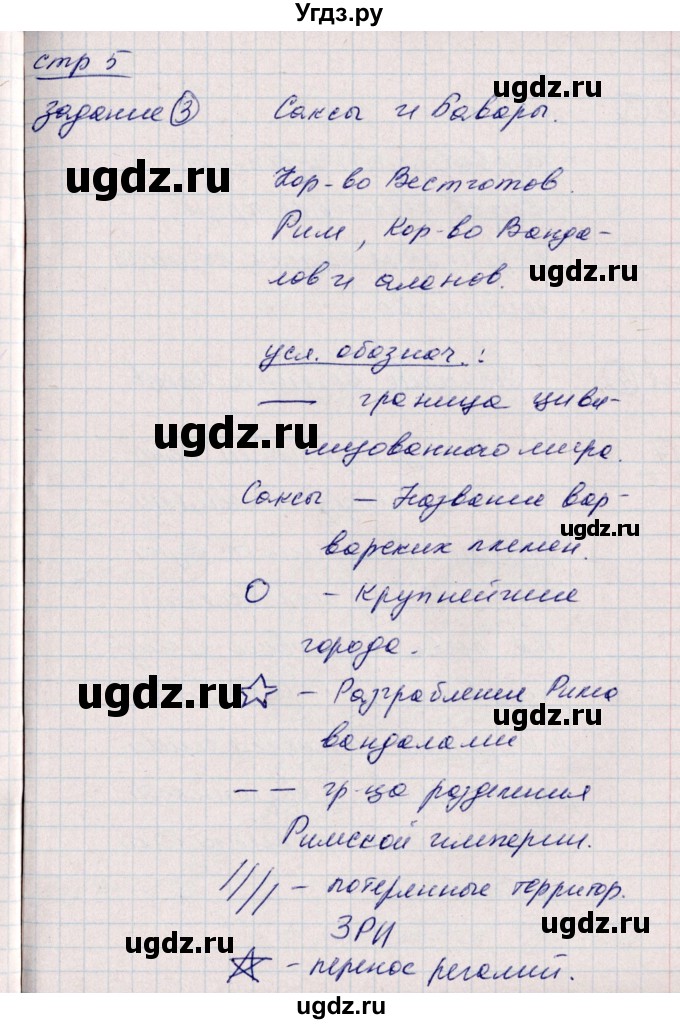 Угдз.ру
стр 5
ugdz.ru
задание 3 Саксы и Бавары.
ugdz.ru
Кор-во Вестготов.
ugdz.ru
Рим, Кор-во Ванда-
лов и аланов.
ugdz.ru
усл. обознач.:
ugdz.ru
— граница циви-
лизованного мира.
ugdz.ru
Саксы — Название вар-
варских племен.
ugdz.ru
О - Крупнейшие
города.
ugdz.ru
☆ - Разграбление Рима
ugdz.ru
вандалами
— — гр-ца разделения
ugdz.ru
Римской империи.
//// - потерянные территор.
ugdz.ru
ЗРИ
ugdz.ru
☆ - перенос регалий.
ugdz.ru